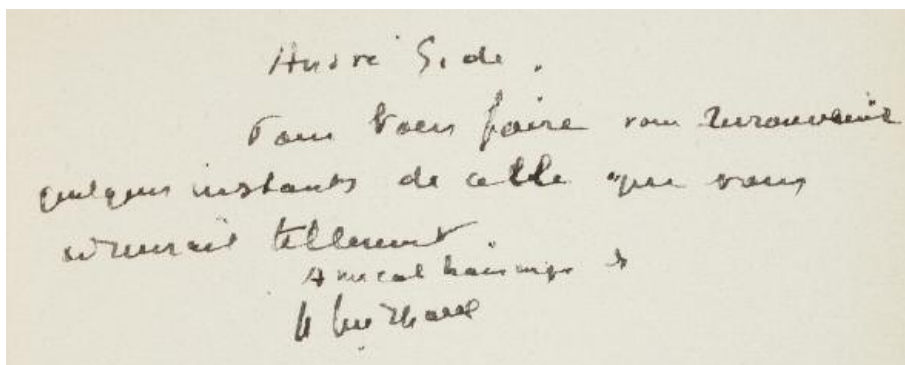 André Gide.
Pour vous faire vous ressouvenir
quelques instants de celle que vous
admirait tellement.
Amical hommage